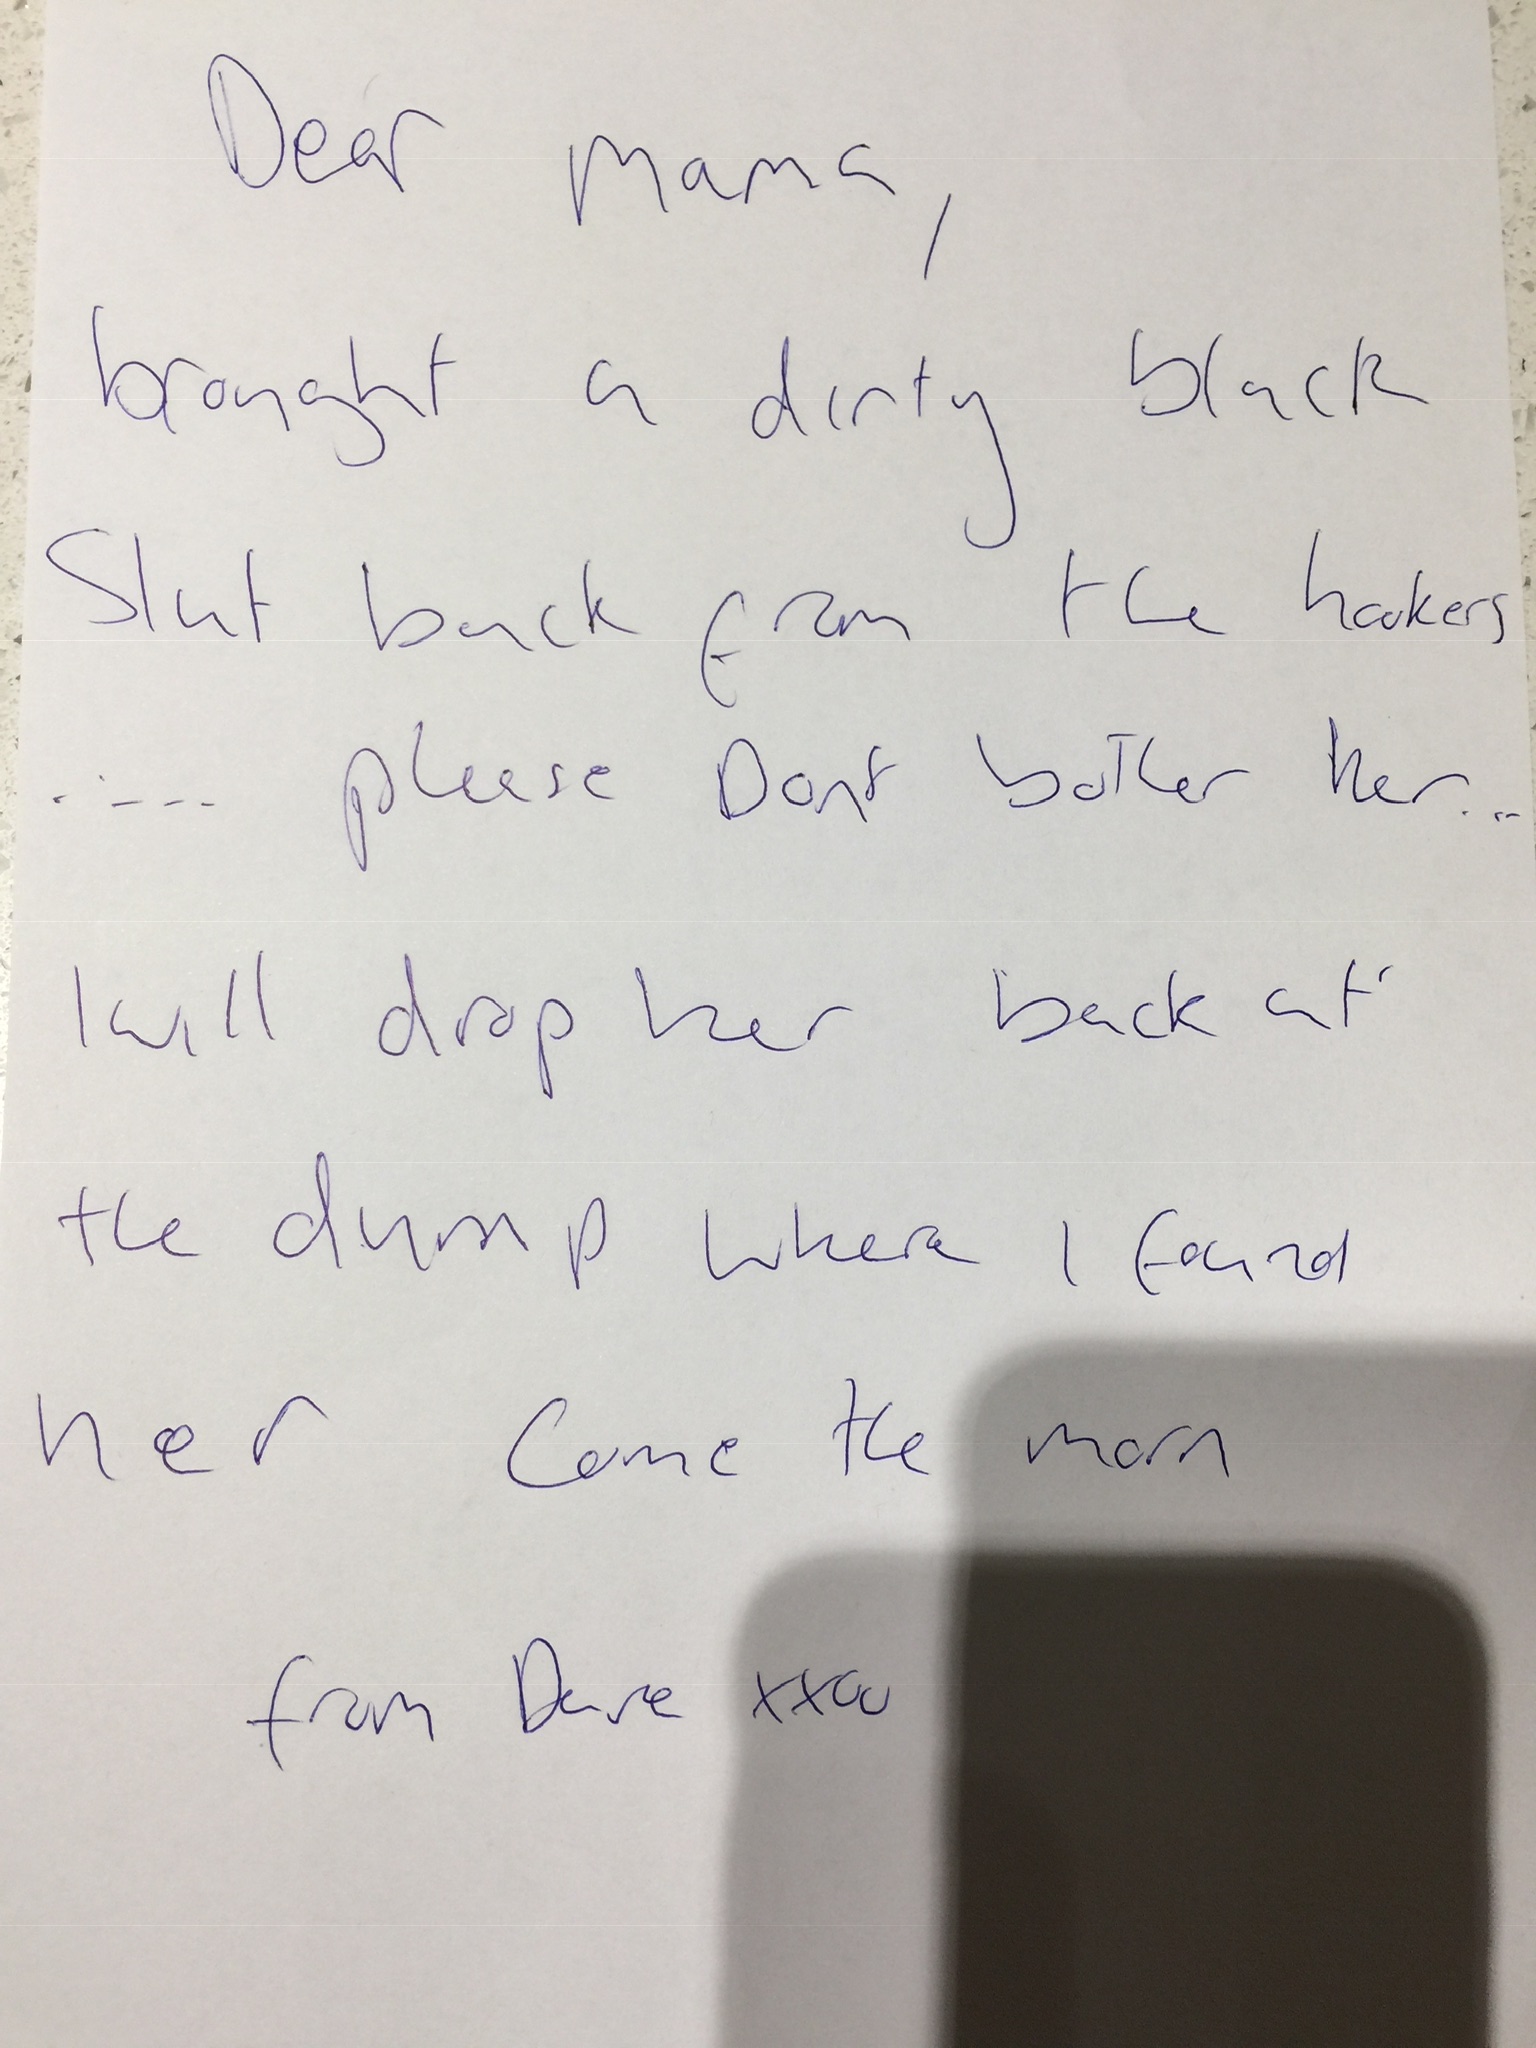 Dear Mama,
brought a dirty black
Slut back from the hookers
..... please Dont bother her...
I will drop her back at
the dump where I found
her Come the morn
from Dave xxoo